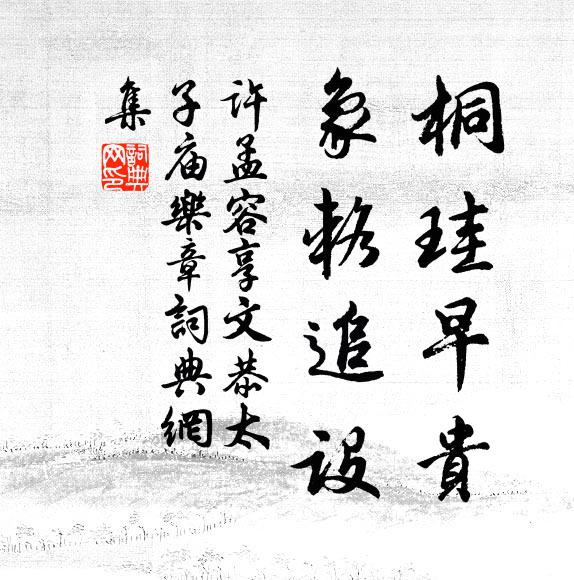 桐珪早貴
象輅追設
許孟容享文恭太
子庙樂章詞典網
集
詞典网印